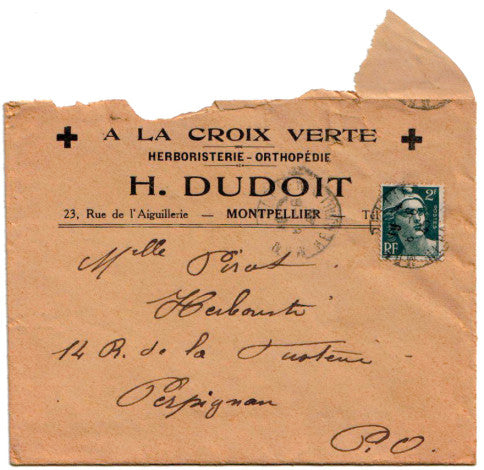 A LA CROIX VERTE
HERBORISTERIE - ORTHOPÉDIE
H. DUDOIT
23, Rue de l'Aiguillerie — MONTPELLIER —
2F
RF
Melle Pirot
Herboriste
14 R. de la
Perpignan
P.O.